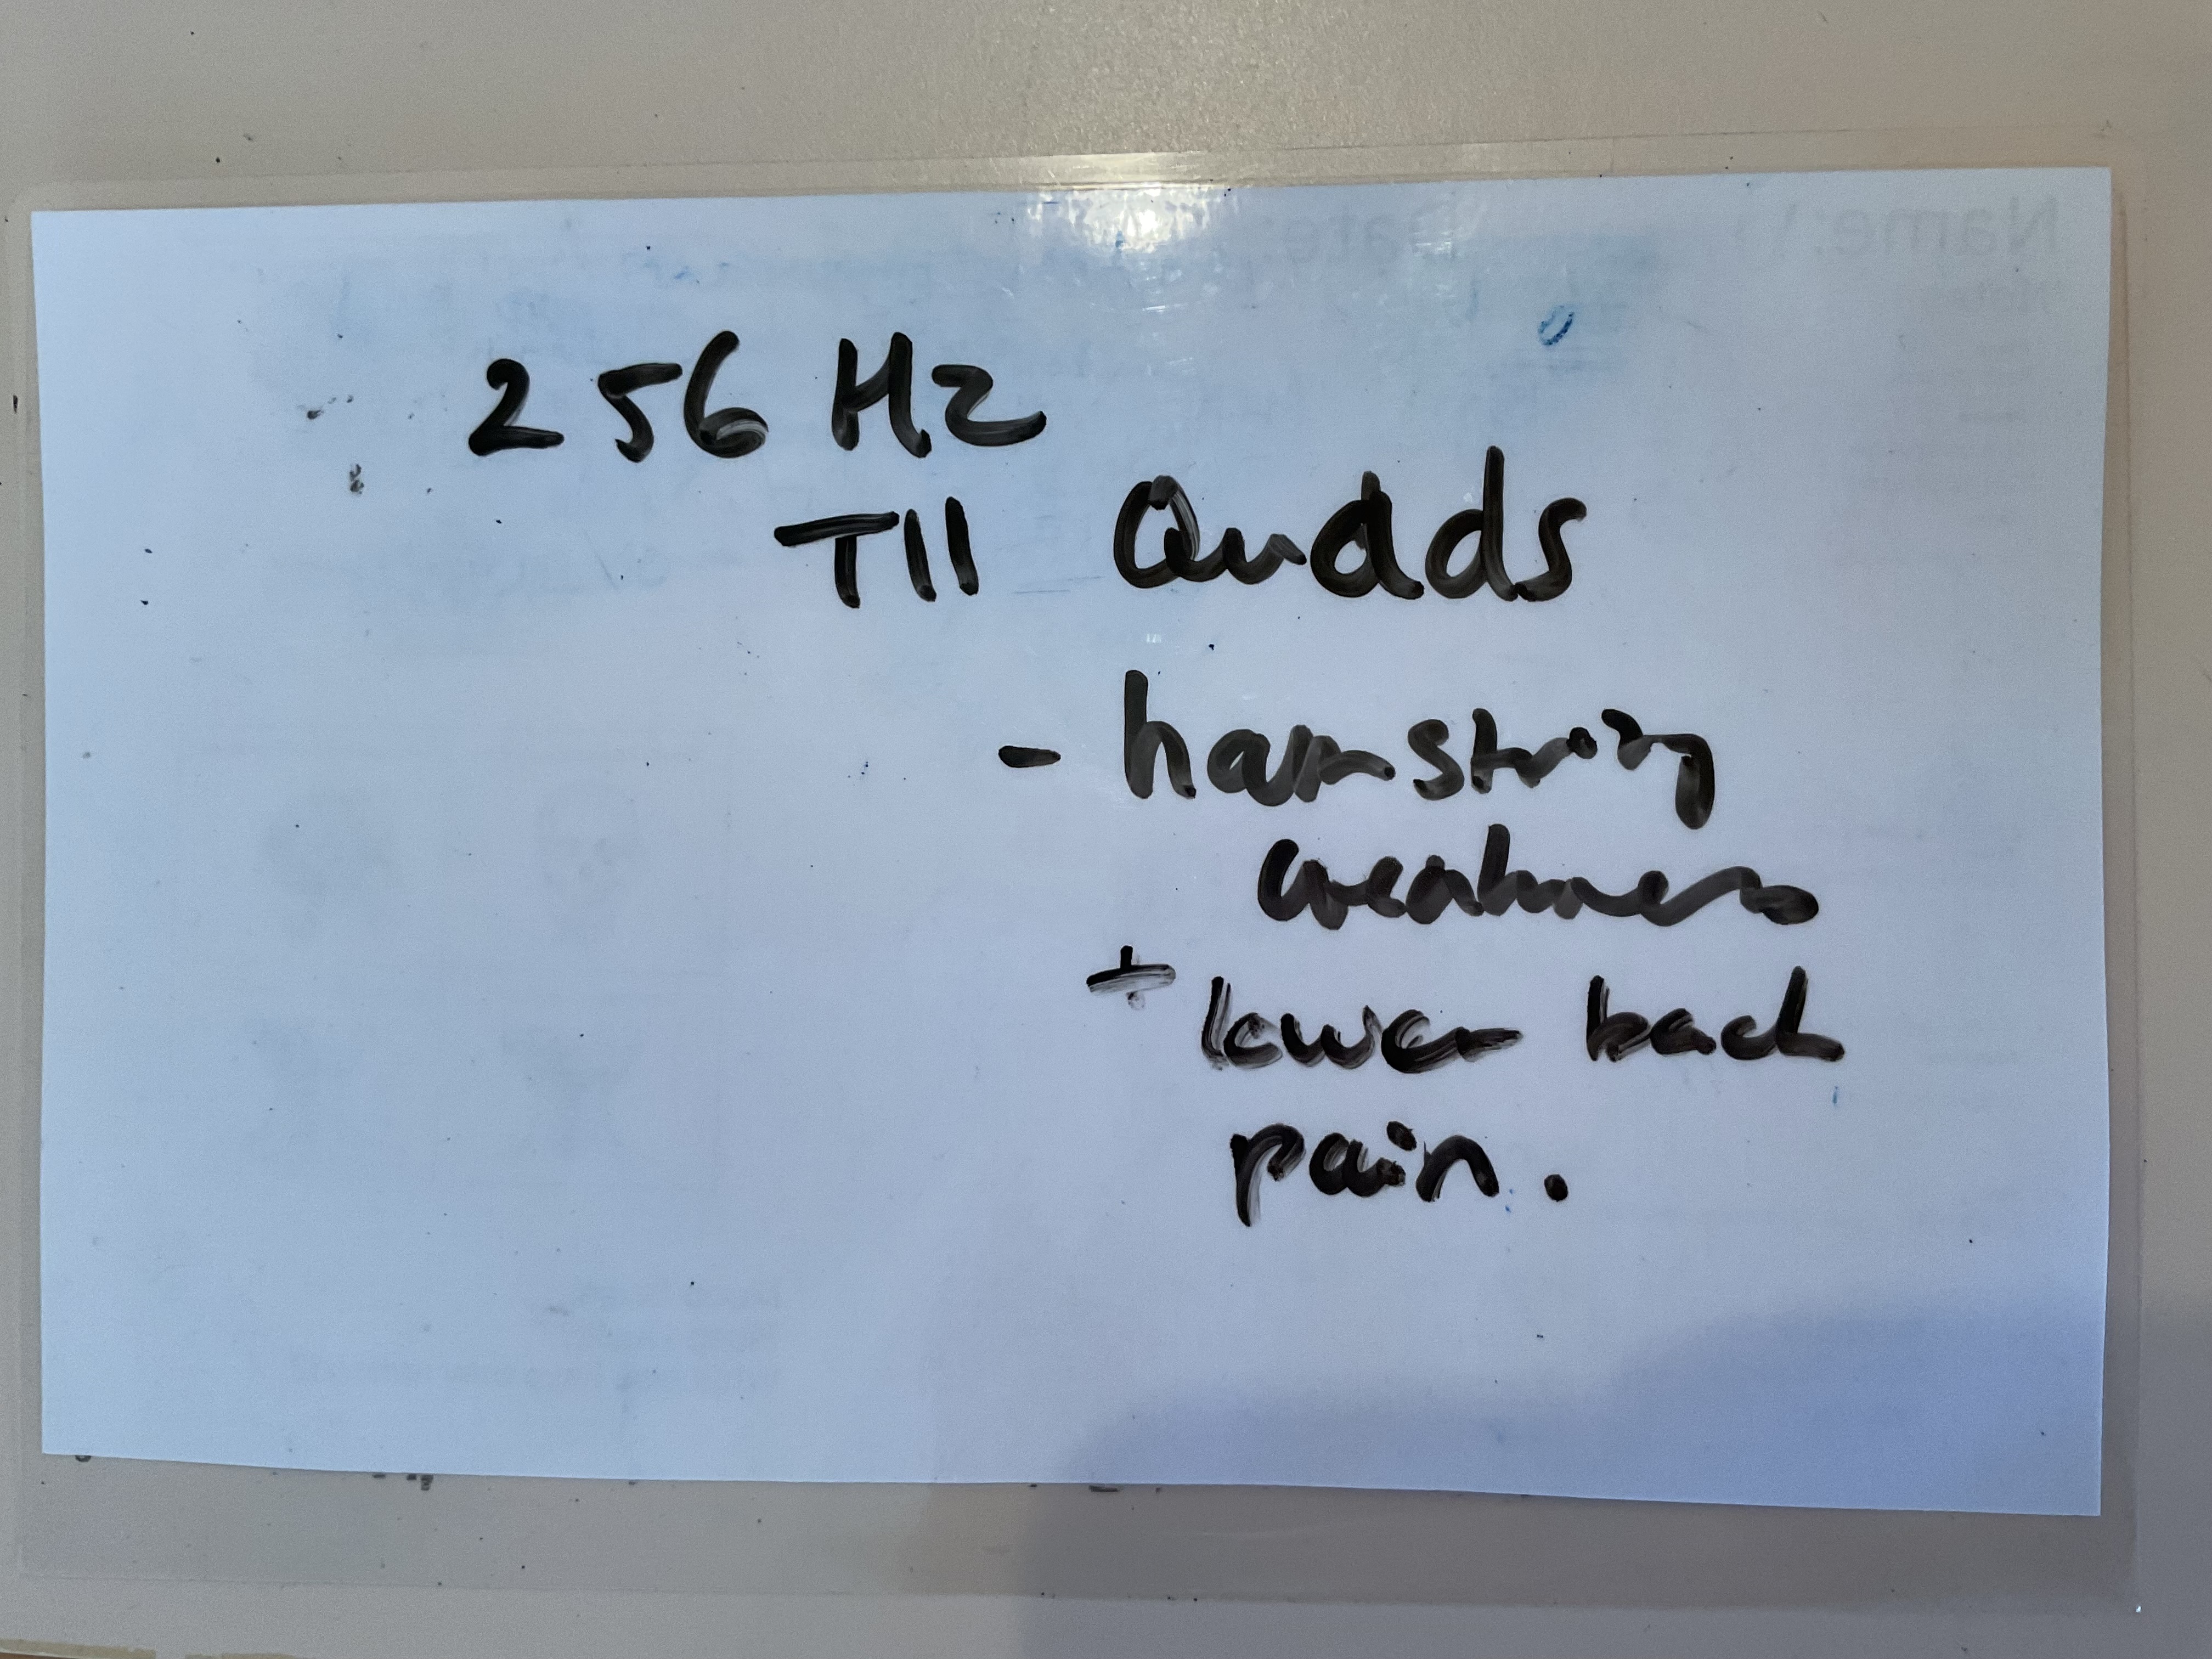 256 Hz
T11 Quads
- hamstring
weakness
+ lower back
pain.